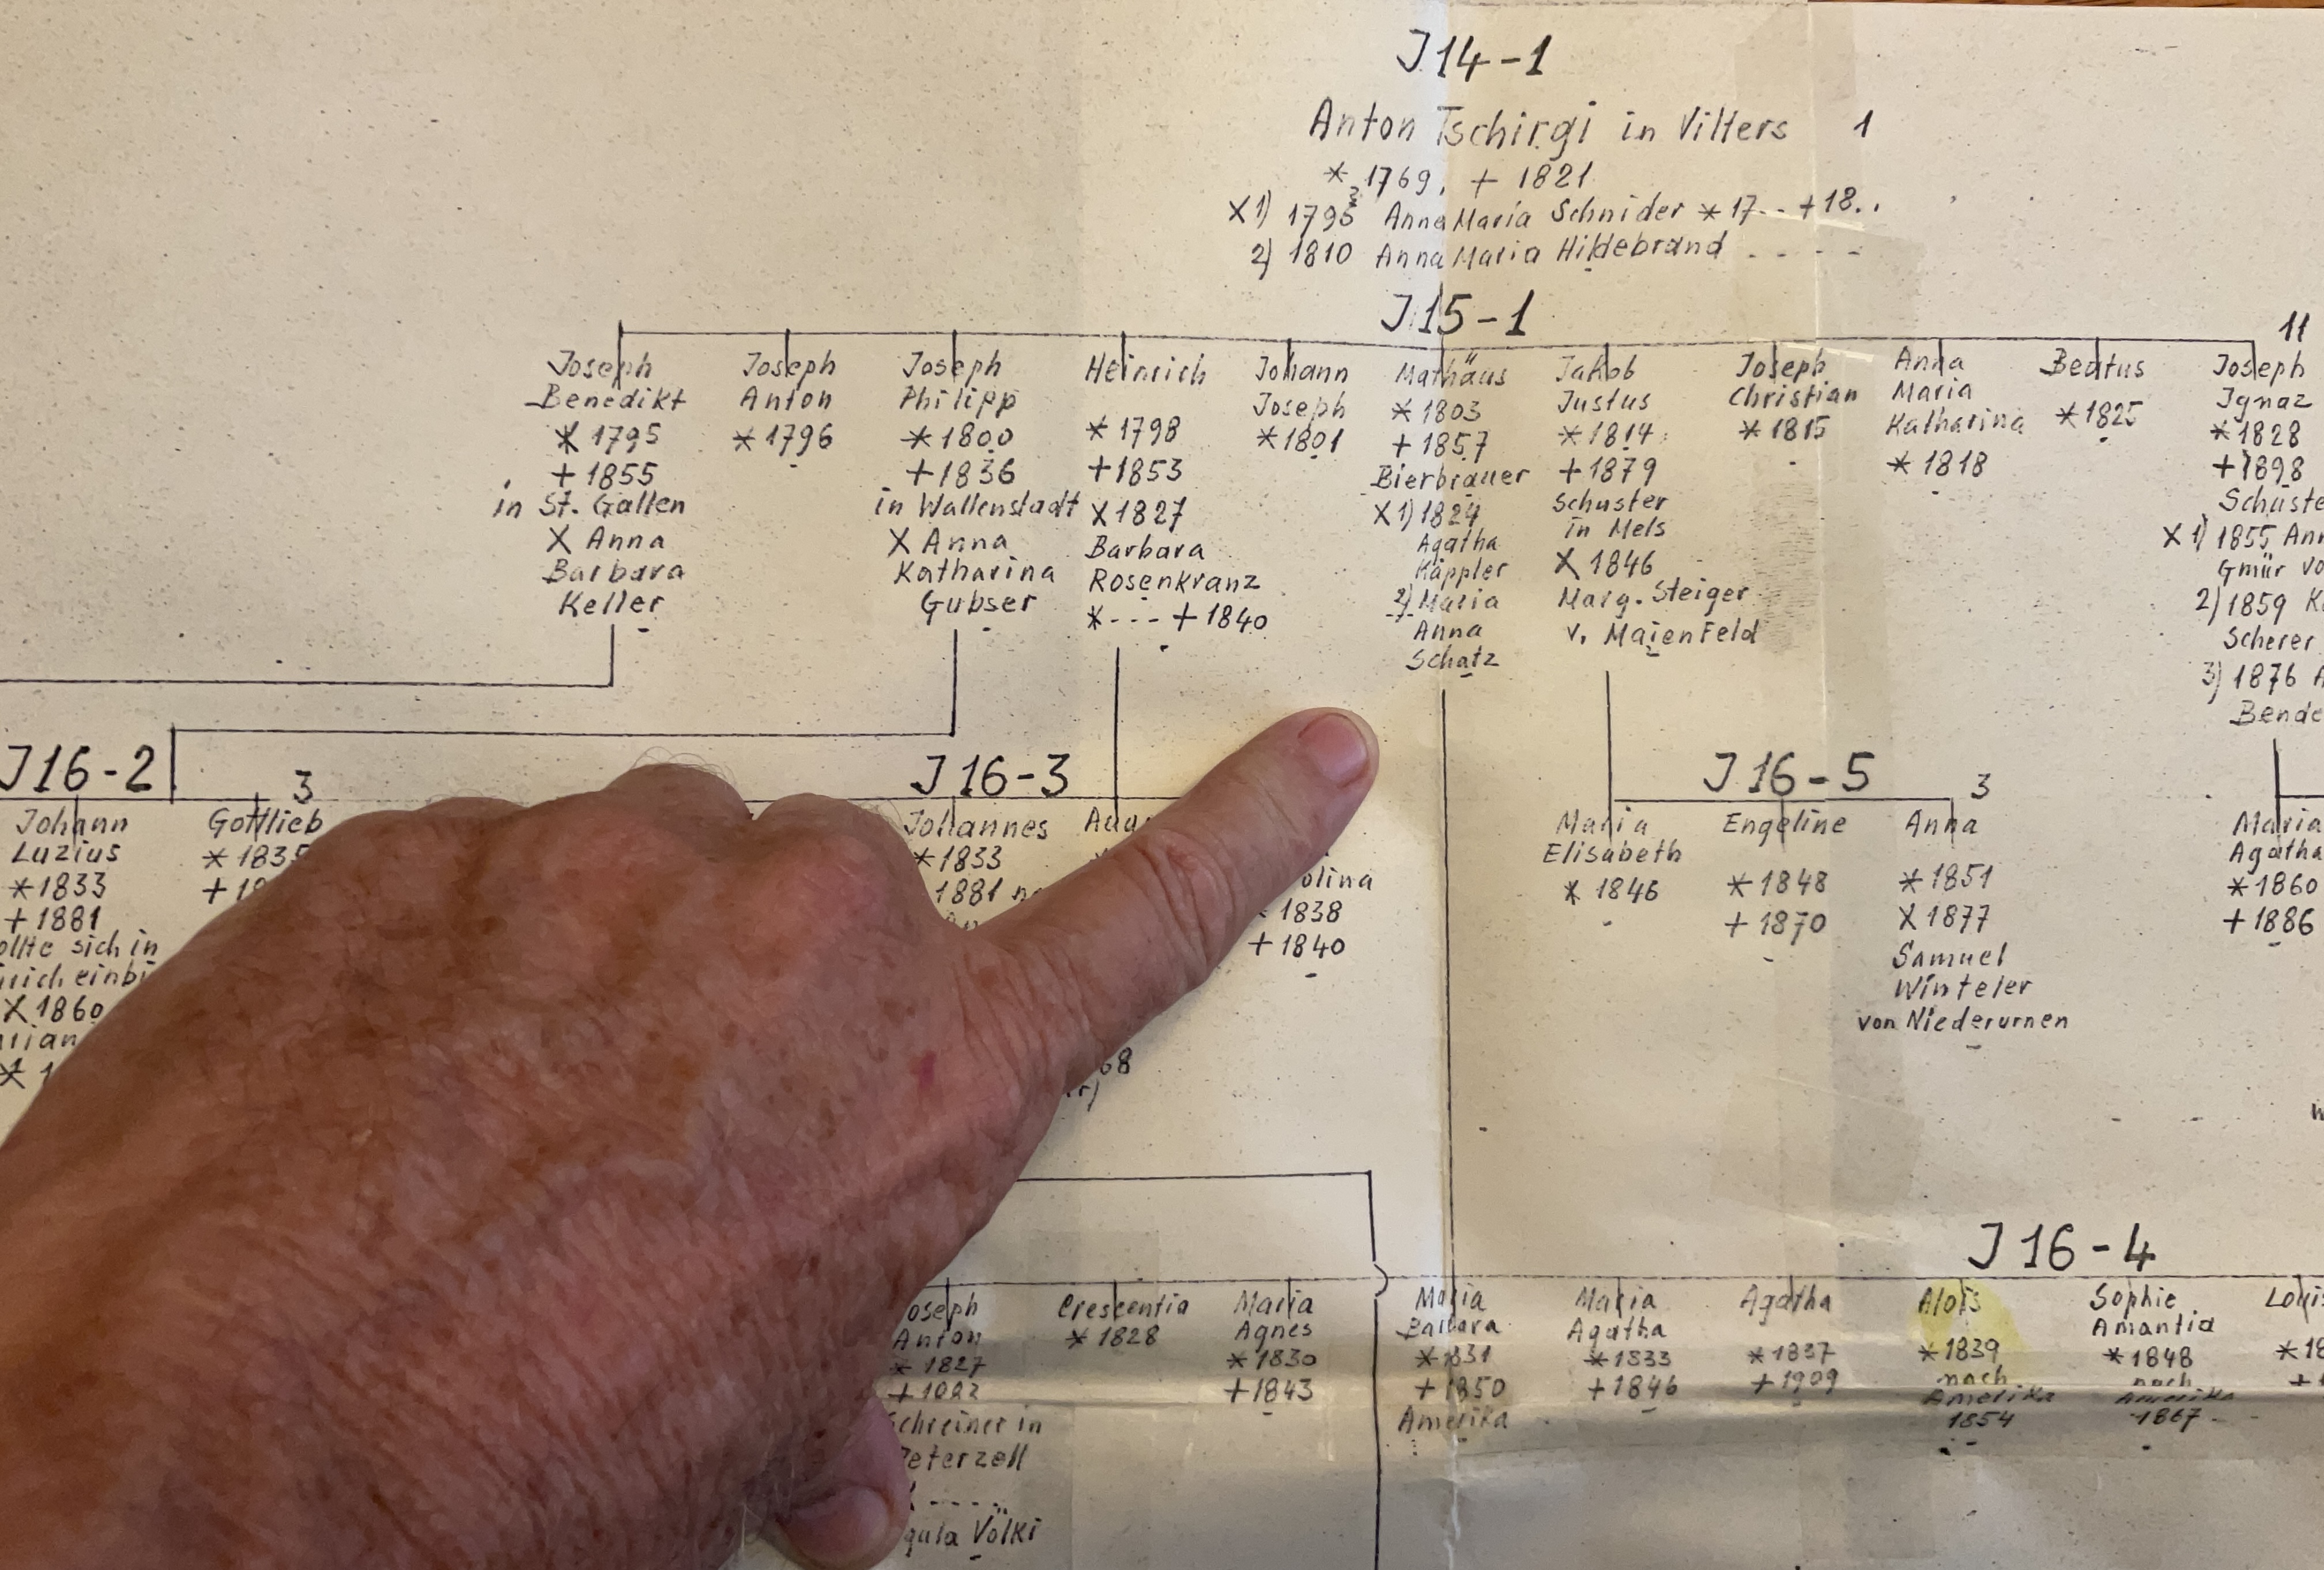 J 14-1
Anton Tschirgi in Vilters 1
* 1769, + 1821
X 1) 1795 Anna Maria Schnider * 17.. + 18..
2) 1810 Anna Maria Hildebrand ....
J 15-1
11
Joseph
Benedikt
* 1795
+ 1855
in St. Gallen
X Anna
Barbara
Keller
Joseph
Anton
* 1796
Joseph
Philipp
* 1800
+ 1836
in Wallenstadt
X Anna
Katharina
Gubser
Heinrich
* 1798
+ 1853
X 1827
Barbara
Rosenkranz
* --- + 1840
Johann
Joseph
* 1801
Mathäus
* 1803
+ 1857
Bierbrauer
X 1) 1824
Agatha
Käppler
2) Maria
Anna
Schatz
Jakob
Justus
* 1814
+ 1879
Schuster
in Mels
X 1846
Marg. Steiger
v. Maienfeld
Joseph
Christian
* 1815
Anna
Maria
Katharina
* 1818
Beatus
* 1825
Joseph
Ignaz
* 1828
+ 1898
Schuste
X 1) 1855 Ann
Gmür vo
2) 1859 K
Scherer
3) 1876 A
Bende
J 16-2
3
Johann
Luzius
* 1833
+ 1881
ollte sich in
X 1860
Gottlieb
* 1835
J 16-3
Johannes
* 1833
1881
olina
1838
+ 1840
68
J 16-5
3
Maria
Elisabeth
* 1846
Engeline
* 1848
+ 1870
Anna
* 1851
X 1877
Samuel
Winteler
von Niederurnen
Maria
Agatha
* 1860
+ 1886
J 16-4
oseph
Anton
* 1827
chreiner in
Peterzell
gula Völki
Crescentia
* 1828
Maria
Agnes
* 1830
+ 1843
Maria
Barbara
* 1831
+ 1850
Amerika
Maria
Agatha
* 1833
+ 1846
Agatha
* 1837
+ 1909
Alois
* 1839
nach
Amerika
1854
Sophie
Amantia
* 1848
nach
Amerika
1867
Louis
* 18